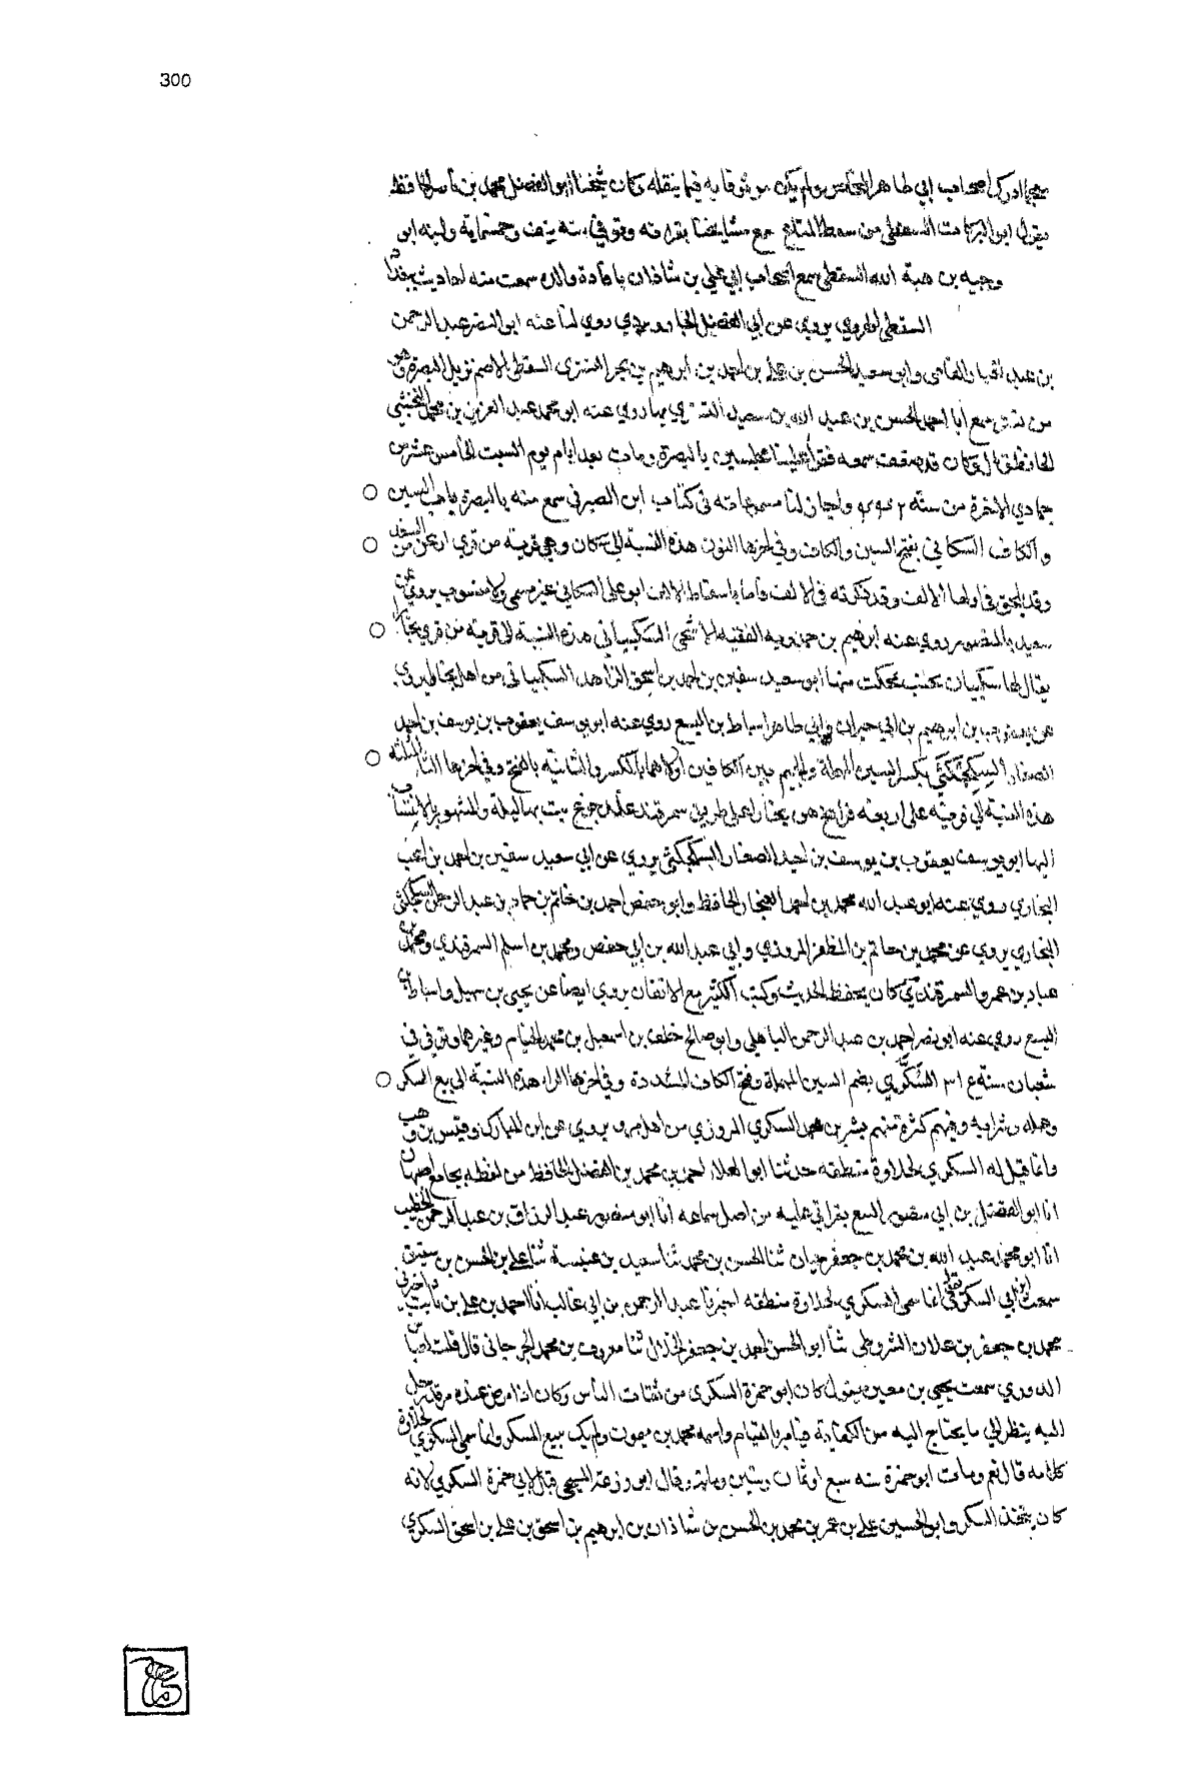 300
ادرك اصحاب ابي طاهر المخلص ولم يكن موثوقا به فيما ينقله وكان شيخنا ابو الفضل محمد بن ناصر الحافظ
يقول ابو البركات السقطي من سقط المتاع سمع مشايخنا بقراته وتوفي سنة نيف وخمسماية وابنه ابو
وجيه بن هبة الله السقطي سمع اصحاب ابي علي بن شاذان بافادة والده سمعت منه احاديث ببغداد
السقطي الهروي يروي عن ابي الفضل الجارودي روي لنا عنه ابو النضر عبد الرحمن
بن عبد الجبار الفامي وابو سعيد الحسن بن علي بن احمد بن ابرهيم بن بحر التستري السقطي الاصم نزيل البصرة وهو
من تستر سمع ابا احمد الحسن بن عبد الله بن سعيد روي عنه ابو محمد عبد العزيز بن محمد النخشبي
الحافظ قال وكان قد ضعف سمعه فقرا علينا مجلسين بالبصرة ومات بعد ايام يوم السبت الخامس عشر من
جمادي الاخرة من سنة واجاز لنا مسموعاته في كتاب ابن الصيرفي سمع منه بالبصرة باب السين
والكاف السكاني بفتح السين والكاف وفي اخرها النون هذه النسبة الى سكان وهي قرية من قري من السغد
وقد يلحق في اولها الالف وقد ذكرته في الالف فاما باسقاط الالف ابو علي السكاني غير مسمي ولا منسوب يروي عن
سعيد بن منصور روي عنه ابرهيم بن حمدويه الفقيه السكبياني هذه النسبة الى قرية من قري بخارا
يقال لها سكبيان بجنب منها ابو سعيد سفين بن احمد بن اسحق الزاهد السكبياني من اهل بخارا يروي
عن يعقوب بن ابرهيم بن ابي حيران وابي طاهر اسباط بن اليسع روي عنه ابو يوسف يعقوب بن يوسف بن احيد
الصفار السِكِجكَثي بكسر السين المهملة والجيم بين الكافين اولاهما بالكسر والثانية بالفتح وفي اخرها الثا المثلثة
هذه النسبة الي قرية على اربعة فراسخ من بخارا على طريق سمرقند بت بها ليلة والمشهور بالانتساب
اليها ابو يوسف يعقوب بن يوسف بن احيد الصفار السكجكثي يروي عن ابي سعيد سفين بن احمد بن اسحق
البخاري روي عنه ابو عبد الله محمد بن احمد الغنجار الحافظ وابو حفص احمد بن حاتم بن حماد بن عبد الرحمن السكجكثي
البخاري يروي عن محمد بن حاتم بن المظفر المروزي وابي عبد الله بن ابي حفص ومحمد بن اسلم السمرقندي ومحمد بن
عباد بن عمرو السمرقندي كان يحفظ الحديث وكتب الكثير مع الاتقان يروي ايضا عن يحيى بن سهيل واسباط بن
اليسع روي عنه ابو نصر احمد بن عبد الرحمن الباهلي وابو صالح خلف بن اسمعيل بن محمد الخيام وغيرهما وتوفي في
شعبان سنة ٣١٤ السُكَّري بضم السين المهملة وفتح الكاف المشددة وفي اخرها الرا هذه النسبة الى بيع السكر
وعمله وشرايه وفيهم كثرة منهم بشر بن محمد السكري المروزي من اهل مرو يروي عن ابن المبارك وقيس بن وهب
وانما قيل له السكري لحلاوة منطقه حدثنا ابو العلاء احمد بن محمد بن الفضل الحافظ من لفظه بجامع اصبهان
انا ابو الفضل بن ابي منصور البيع بقراتي عليه من اصل سماعه انا ابو منصور عبد الرزاق بن عبد الرحمن الخطيب
انا ابو محمد عبد الله بن محمد بن جعفر حيان ثنا الحسن بن محمد ثنا سعيد بن عنبسة ثنا علي بن الحسن بن شقيق
سمعت ابي السكري انما سمي السكري لحلاوة منطقه اخبرنا عبد الرحمن بن ابي غالب انا احمد بن علي بن ثابت اخبرني
محمد بن جعفر بن علان الشروطي ثنا ابو الحسن احمد بن جعفر الخلال ثنا معروف بن محمد الجرجاني قال قلت
الدوري سمعت يحيى بن معين يقول كان ابو حمزة السكري من ثقات الناس وكان اذا مرض عنده من قد رحل
اليه ينظر الى ما يحتاج اليه من الكفاية فيامر بالقيام واسمه محمد بن ميمون ولم يكن يبيع السكر وانما سمي السكري لحلاوة
كلامه قال نعم ومات ابو حمزة سنه سبع او ثمان وستين وماية وقال ابو زرعة السبحي قيل لابي حمزة السكري لانه
كان يتخذ السكر وابو الحسين علي بن عمر بن محمد بن الحسن بن شاذان بن ابرهيم بن اسحق بن علي بن اسحق السكري